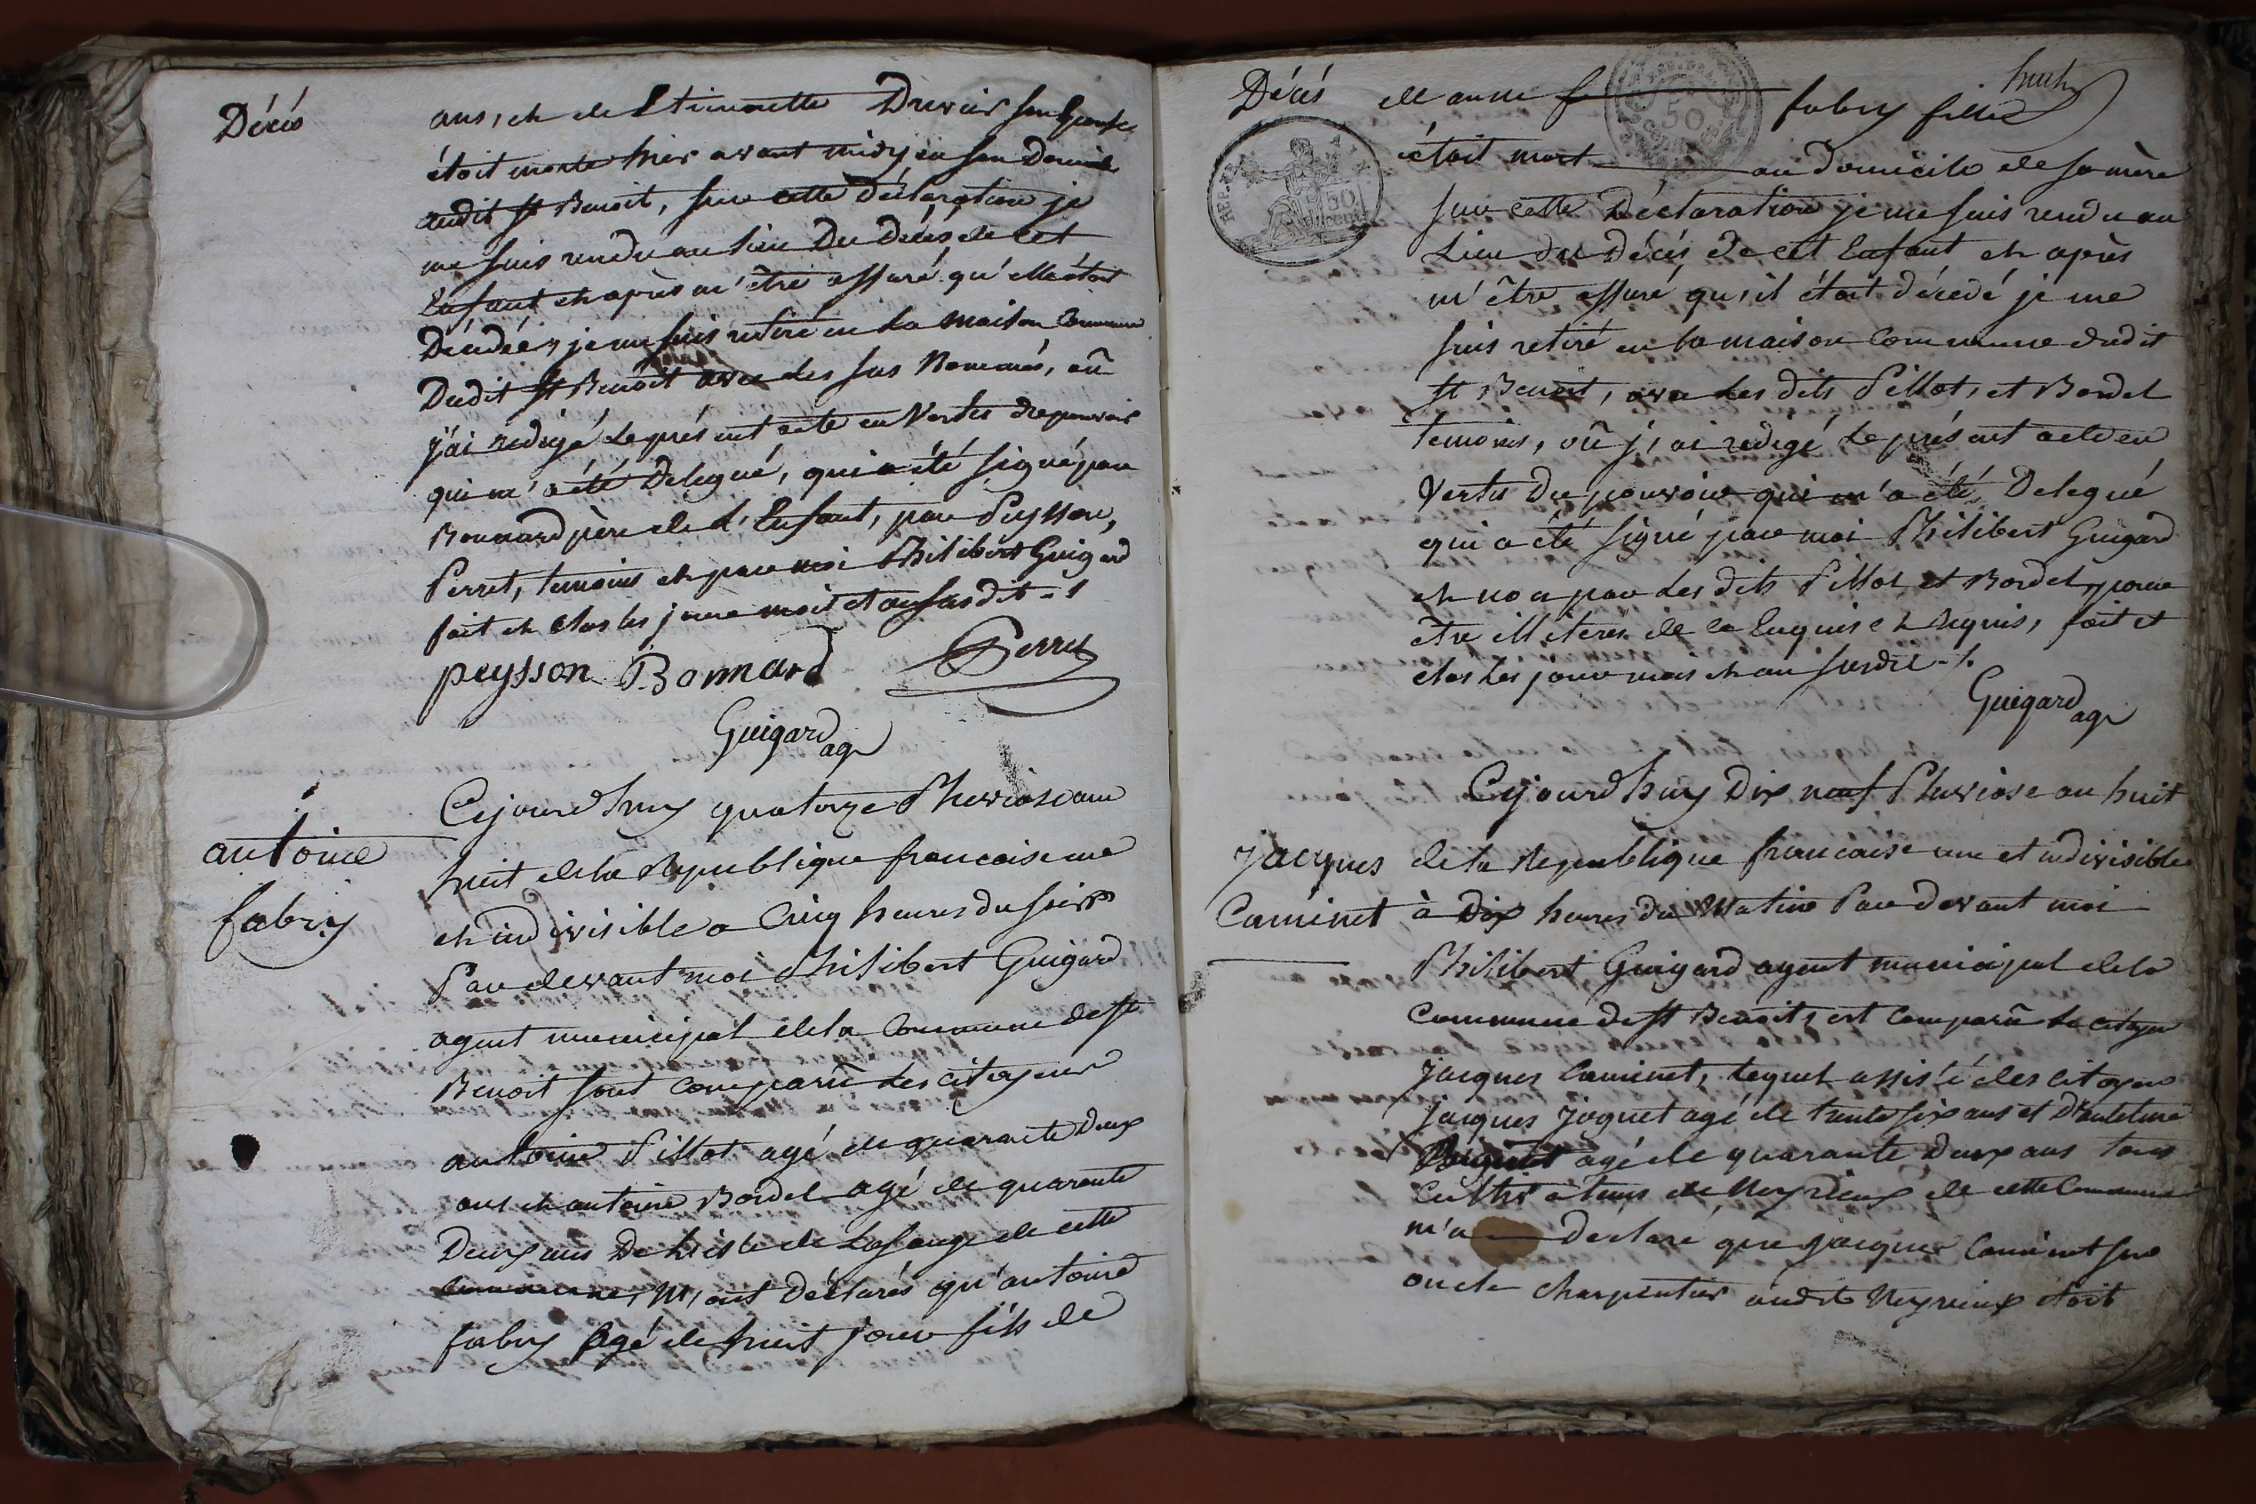 Décés
ans, et de Etiennette Duvair son Epouse
étoit morte hier avant midy en son Domicile
audit St Benoit, sur cette déclaration je
me suis rendu au lieu Du décés de cet
Enfant et après m'être assuré qu'elle étoit
Décédée, je me suis retiré en La maison Commune
Dudit St Benoit avec les sus Nommés, où
j'ai redigé Le présent acte en Vertus du pouvoir
qui m'a été Delegué, qui a été signé par
Bonnard père de L'Enfant, par Peysson,
Perret, temoins et par moi Philibert Guigard
fait et clos les jour mois et an susdit
peysson Bonnard Perret
Guigard agt
antoine
fabry
Cejourd'huy quatorze Pluviose an
huit de la Republique francaise une
et indivisible a Cinq heures du soir
Par devant moi Philibert Guigard
agent municipal de la Commune de St
Benoit sont comparû les citoyens
antoine Pillot agé de quarante Deux
ans et antoine Bordel agé de quarante
Deux ans De L'isle de Lafange de cette
Commune, M'ont déclarés qu'antoine
fabry Agé de huit jour fils de
huit
Décés
REP. FRA.
50
CENT.
50
CENT.
de anne fabry fille
étoit mort au Domicile de sa mère
sur cette Déclaration je me suis rendu au
Lieu du Décés de cet Enfant et après
m'être assuré qu'il étoit décedé je me
suis retiré en la maison Commune dudit
St Benoit, avec Les dits Pillot, et Bordel
temoins, où j'ai redigé Le présent acte en
Vertus Du pouvoir qui m'a été Delegué
qui a été signé par moi Philibert Guigard
et non par Les dits Pillot et Bordel, pour
être illéteres de ce Enquis et Requis, fait et
clos Les jour mois et an susdit
Guigard agt
Jacques
Caminet
Cejourd'huy Dix neuf Pluviose an huit
de la Republique francaise une et indivisible
à Dix heures du Matin Par devant moi
Philibert Guigard agent municipal de la
Commune de St Benoit, est comparû Le citoyen
Jacques Caminet, Lequel assisté des citoyens
Jacques Joguet agé de trente six ans et d'anteleme
agé de quarante Deux ans tous
Cultivateurs de Neyrieux de cette Commune
m'a Declaré que jacque Caminet son
oncle charpentier audit Neyrieux étoit